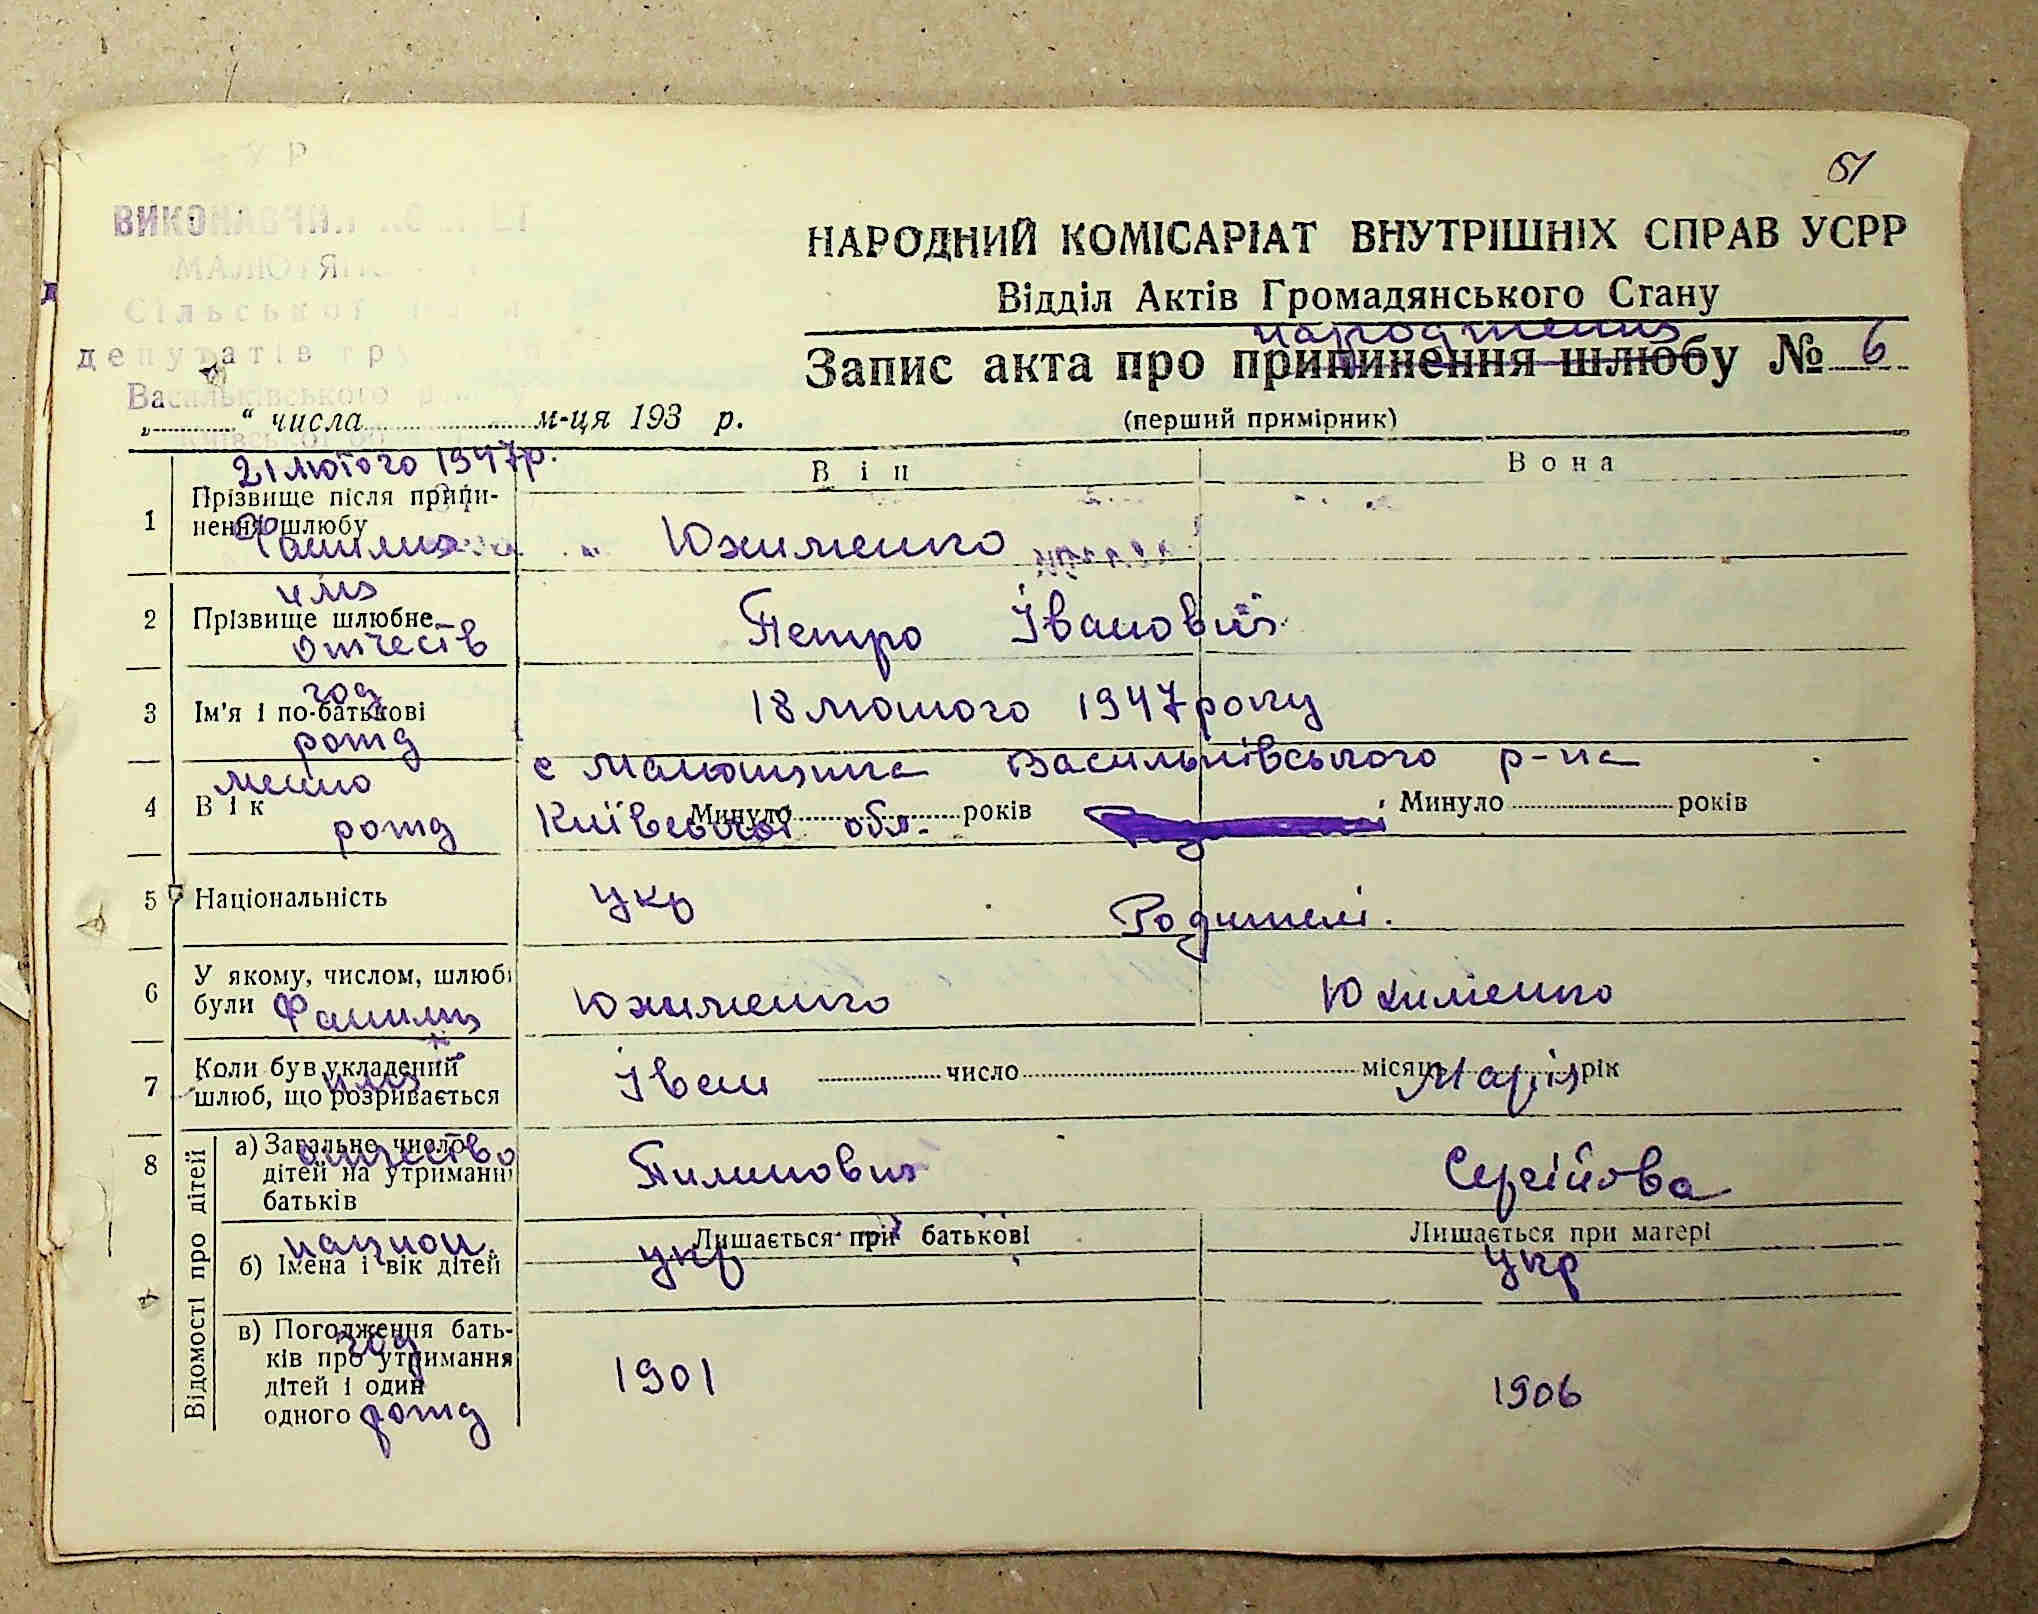 51
ВИКОНАВЧИЙ
Сільської
депутатів
Васильківського
НАРОДНИЙ КОМІСАРІАТ ВНУТРІШНІХ СПРАВ УСРР
Відділ Актів Громадянського Стану
народження
Запис акта про припинення шлюбу № 6
(перший примірник)
„ “ числа м-ця 193 р.
21 лютого 1947 р.
Він Вона
1 Прізвище після припи-
нення шлюбу
Фамилия Юхименко
2 Прізвище шлюбне
имя
отчеств Петро Іванович
3 Ім'я і по-батькові
год
рожд 18 лютого 1947 року
4 Вік
место
рожд
с Малютянка Васильківського р-на
Київської обл. Минуло років Минуло років
5 Національність укр Родителі.
6 У якому, числом, шлюбі
були Фамилия Юхименко Юхименко
7 Коли був укладений
шлюб, що розривається
имя Іван число місяць Марія рік
8 Відомості про дітей
а) Загальне число
дітей на утриманні
батьків
отчество Пилипович Сергійовa
Лишається при батькові Лишається при матері
национ.
б) Імена і вік дітей укр укр
в) Погодження бать-
ків про утримання
дітей і один
одного
год
рожд 1901 1906